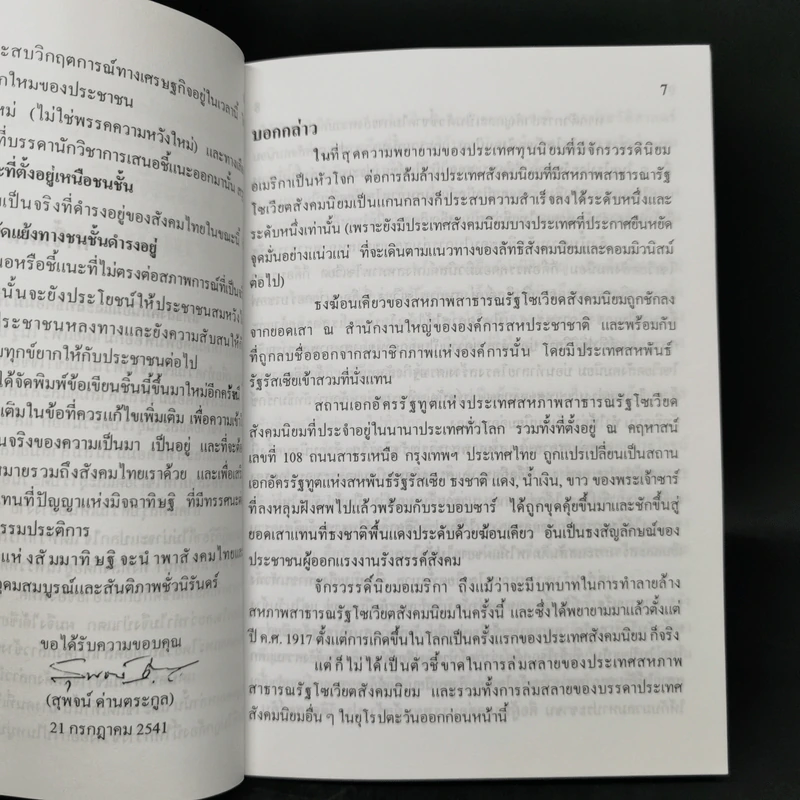 ะสบวิกฤตการณ์ทางเศรษฐกิจอยู่ในเวลานี้
กใหม่ของประชาชน
หม่ (ไม่ใช่พรรคความหวังใหม่) และทาง
ที่บรรดานักวิชาการเสนอชี้แนะออกมานั้น
ะที่ตั้งอยู่เหนือชนชั้น
เป็นจริงที่ดำรงอยู่ของสังคมไทยในขณะนี้
ัดแย้งทางชนชั้นดำรงอยู่
นอหรือชี้แนะที่ไม่ตรงต่อสภาพการณ์ที่เป็น
นั้นจะยังประโยชน์ให้ประชาชนสมหวัง
ประชาชนหลงทางและยังความสับสนให้
มทุกข์ยากให้กับประชาชนต่อไป
ได้จัดพิมพ์ข้อเขียนชิ้นนี้ขึ้นมาใหม่อีกครั้ง
เติมในข้อที่ควรแก้ไขเพิ่มเติม เพื่อความเข้า
นจริงของความเป็นมา เป็นอยู่ และที่จะต้
มายรวมถึงสังคมไทยเราด้วย และเพื่อ
แทนที่ปัญญาแห่งมิจฉาทิษฐิ ที่มีทรรศนะ
รรมประติการ
แห่งสัมมาทิษฐิจะนำพาสังคมไทยและ
อุดมสมบูรณ์และสันติภาพชั่วนิรันดร์
ขอได้รับความขอบคุณ
(สุพจน์ ด่านตระกูล)
21 กรกฎาคม 2541
7
บอกกล่าว
ในที่สุดความพยายามของประเทศทุนนิยมที่มีจักรวรรดินิยม
อเมริกาเป็นหัวโจก ต่อการล้มล้างประเทศสังคมนิยมที่มีสหภาพสาธารณรัฐ
โซเวียตสังคมนิยมเป็นแกนกลางก็ประสบความสำเร็จลงได้ระดับหนึ่งและ
ระดับหนึ่งเท่านั้น (เพราะยังมีประเทศสังคมนิยมบางประเทศที่ประกาศยืนหยัด
จุดมั่นอย่างแน่วแน่ ที่จะเดินตามแนวทางของลัทธิสังคมนิยมและคอมมิวนิสม์
ต่อไป)
ธงฆ้อนเคียวของสหภาพสาธารณรัฐโซเวียตสังคมนิยมถูกชักลง
จากยอดเสา ณ สำนักงานใหญ่ขององค์การสหประชาชาติ และพร้อมกับ
ที่ถูกลบชื่อออกจากสมาชิกภาพแห่งองค์การนั้น โดยมีประเทศสหพันธ์
รัฐรัสเซียเข้าสวมที่นั่งแทน
สถานเอกอัครรัฐทูตแห่งประเทศสหภาพสาธารณรัฐโซเวียต
สังคมนิยมที่ประจำอยู่ในนานาประเทศทั่วโลก รวมทั้งที่ตั้งอยู่ ณ คฤหาสน์
เลขที่ 108 ถนนสาธรเหนือ กรุงเทพฯ ประเทศไทย ถูกแปรเปลี่ยนเป็นสถาน
เอกอัครรัฐทูตแห่งสหพันธ์รัฐรัสเซีย ธงชาติ แดง, น้ำเงิน, ขาว ของพระเจ้าซาร์
ที่ลงหลุมฝังศพไปแล้วพร้อมกับระบอบซาร์ ได้ถูกขุดคุ้ยขึ้นมาและชักขึ้นสู่
ยอดเสาแทนที่ธงชาติพื้นแดงประดับด้วยฆ้อนเคียว อันเป็นธงสัญลักษณ์ของ
ประชาชนผู้ออกแรงงานรังสรรค์สังคม
จักรวรรดิ์นิยมอเมริกา ถึงแม้ว่าจะมีบทบาทในการทำลายล้าง
สหภาพสาธารณรัฐโซเวียตสังคมนิยมในครั้งนี้ และซึ่งได้พยายามมาแล้วตั้งแต่
ปี ค.ศ. 1917 ตั้งแต่การเกิดขึ้นในโลกเป็นครั้งแรกของประเทศสังคมนิยม ก็จริง
แต่ก็ไม่ได้เป็นตัวชี้ขาดในการล่มสลายของประเทศสหภาพ
สาธารณรัฐโซเวียตสังคมนิยม และรวมทั้งการล่มสลายของบรรดาประเทศ
สังคมนิยมอื่น ๆ ในยุโรปตะวันออกก่อนหน้านี้